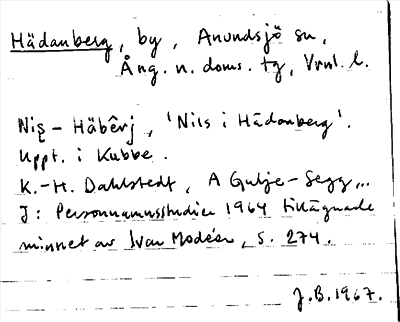 Hädanberg, by, Anundsjö sn,
Ång. n. doms. tg, Vrnl. l.
Nis̨ - Häbêrj, 'Nils i Hädanberg'.
Uppt. i Kubbe.
K.-H. Dahlstedt, A Gulje-Segg...
I: Personnamnsstudier 1964 tillägnade
minnet av Ivar Modéer, s. 274.
J.B. 1967.